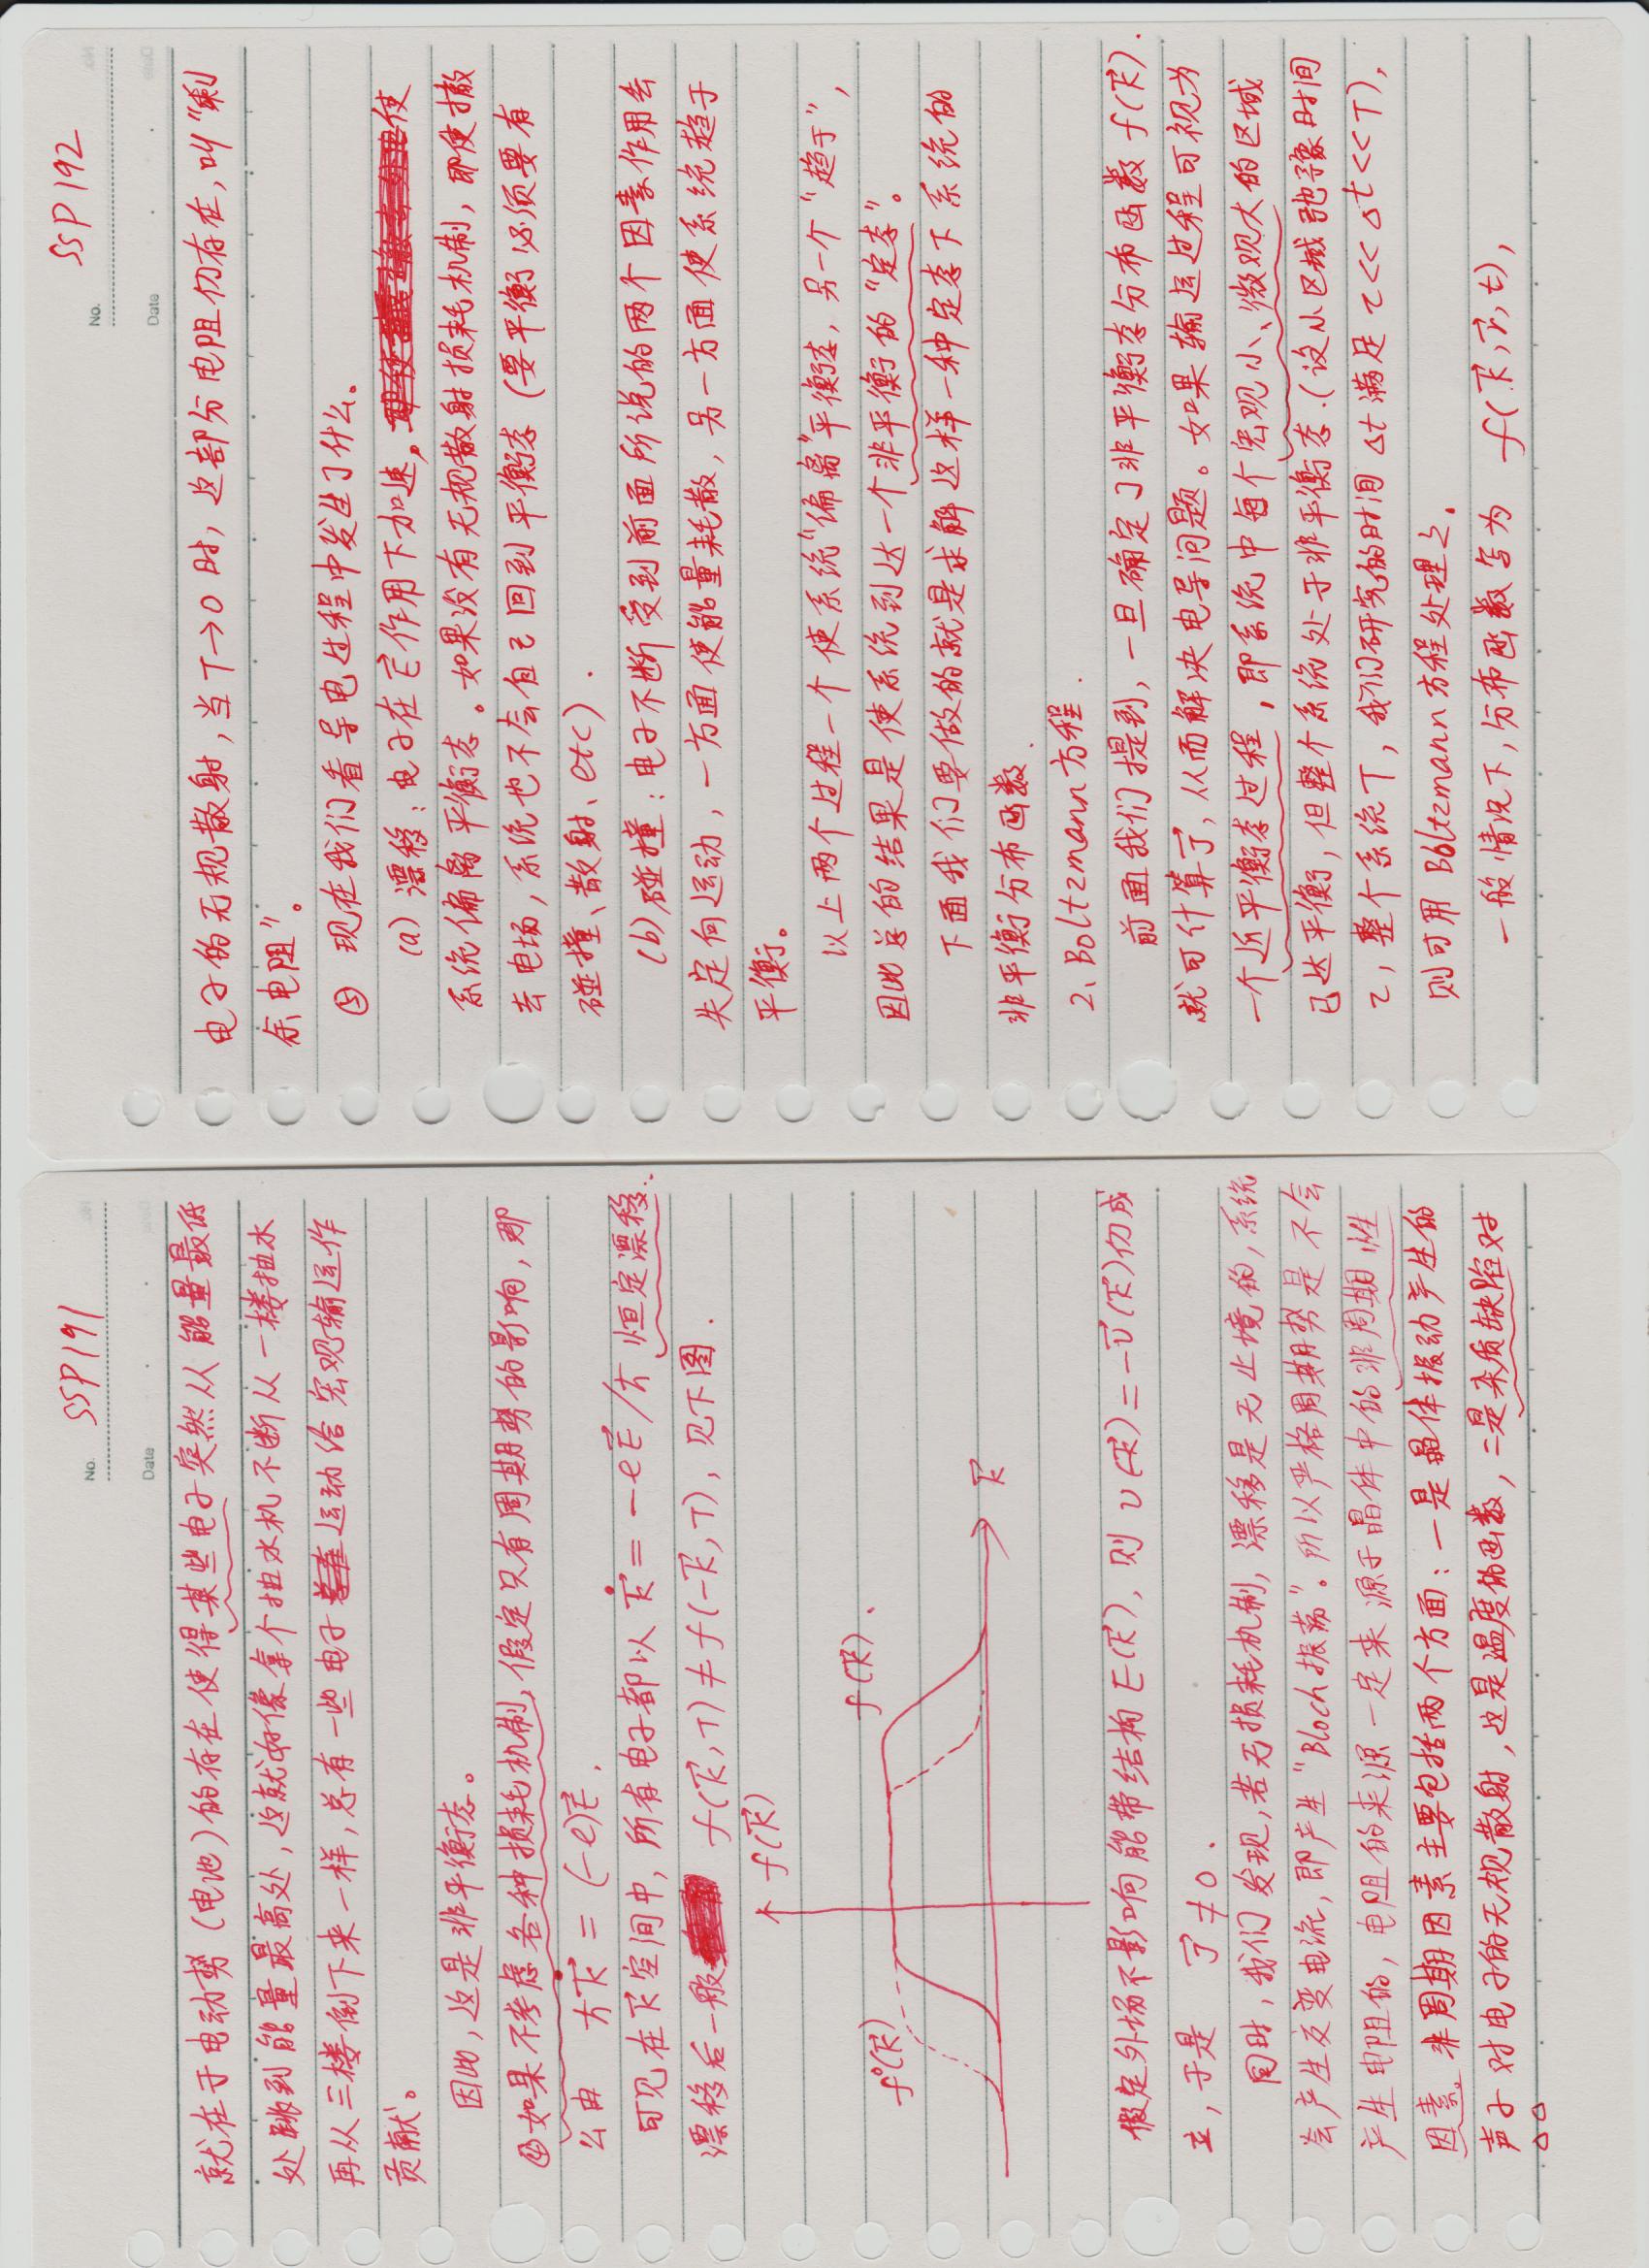 No. SSP191
Date
就在于电动势（电池）的存在使得某些电子突然从能量最低
处跳到能量最高处，这就好像拿个抽水机不断从一楼抽水
再从三楼倒下来一样，总有一些电子运动给宏观输运作
贡献。
因此，这是非平衡态。
④如果不考虑各种损耗机制，假定只有周期势的影响，那
么由 ħk⃗̇ = (-e)E⃗.
可见在k⃗空间中，所有电子都以 k⃗̇ = -eE⃗/ħ 恒定漂移.
漂移后一般 f(k⃗,T) ≠ f(-k⃗,T)，见下图.
f(k⃗)
f⁰(k⃗)
f(k⃗).
k⃗
假定外场不影响能带结构E(k⃗)，则 υ(k⃗)=-υ⃗(k⃗)仍成
立，于是 J⃗≠0.
同时，我们发现，若无损耗机制，漂移是无止境的，系统
会产生交变电流，即产生“Bloch振荡”。所以严格周期势是不会
产生电阻的，电阻的来源一定来源于晶体中的非周期性
因素。非周期因素主要包括两个方面：一是晶体振动产生的
声子对电子的无规散射，这是温度的函数，二是杂质缺陷对
No. SSP192
Date
电子的无规散射，当T→0时，这部分电阻仍存在，叫“剩
余电阻”。
⑤ 现在我们看导电过程中发生了什么。
(a) 漂移：电子在E⃗作用下加速，使
系统偏离平衡态。如果没有无规散射损耗机制，即使撤
去电场，系统也不会自己回到平衡态（要平衡必须要有
碰撞、散射、etc）.
(b) 碰撞：电子不断受到前面所说的两个因素作用会
失定向运动，一方面使能量耗散，另一方面使系统趋于
平衡。
以上两个过程一个使系统“偏离”平衡态，另一个“趋于”，
因此总的结果是使系统到达一个非平衡的“定态”。
下面我们要做的就是求解这样一种定态下系统的
非平衡分布函数.
2、Boltzmann方程.
前面我们提到，一旦确定了非平衡态分布函数f(k⃗).
就可计算J⃗，从而解决电导问题。如果输运过程可视为
一个近平衡态过程，即系统中每个宏观小、微观大的区域
已达平衡，但整个系统处于非平衡态.（设小区域弛豫时间
τ，整个系统T，我们研究的时间Δt满足τ<<Δt<<T），
则可用Boltzmann方程处理之.
一般情况下，分布函数写为 f(k⃗,r⃗,t)，